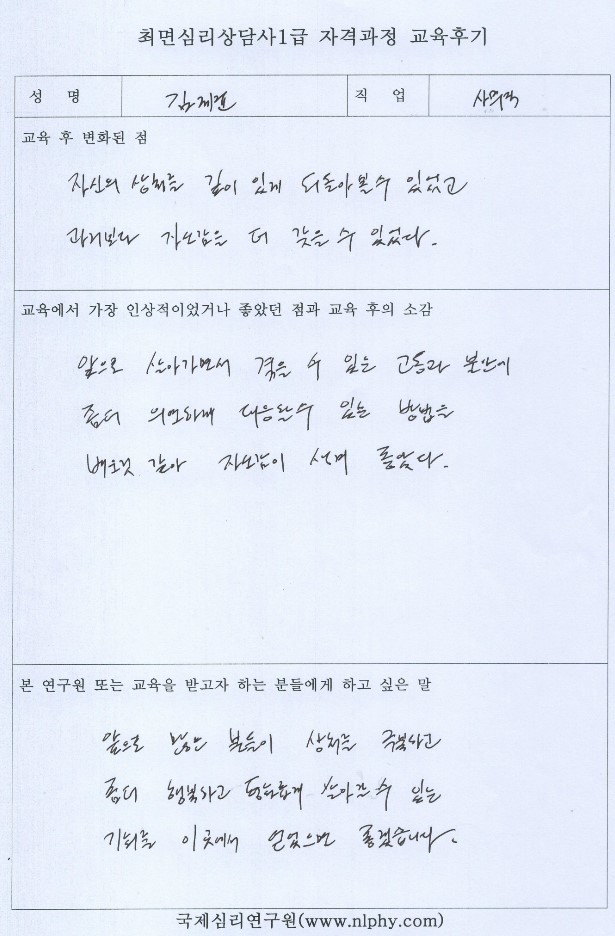 최면심리상담사1급 자격과정 교육후기
성 명
직 업
교육 후 변화된 점
자신의 상처를 깊이 있게 되돌아볼수 있었고
과거보다 자신감을 더 갖을 수 있었다.
교육에서 가장 인상적이었거나 좋았던 점과 교육 후의 소감
앞으로 살아가면서 겪을 수 있는 고통과 불안에
좀더 의연하게 대응할수 있는 방법을
배운것 같아 자신감이 생겨 좋았다.
본 연구원 또는 교육을 받고자 하는 분들에게 하고 싶은 말
앞으로 많은 분들이 상처를 극복하고
좀더 행복하고 살아갈 수 있는
기회를 이곳에서 얻었으면 좋겠습니다.
국제심리연구원(www.nlphy.com)